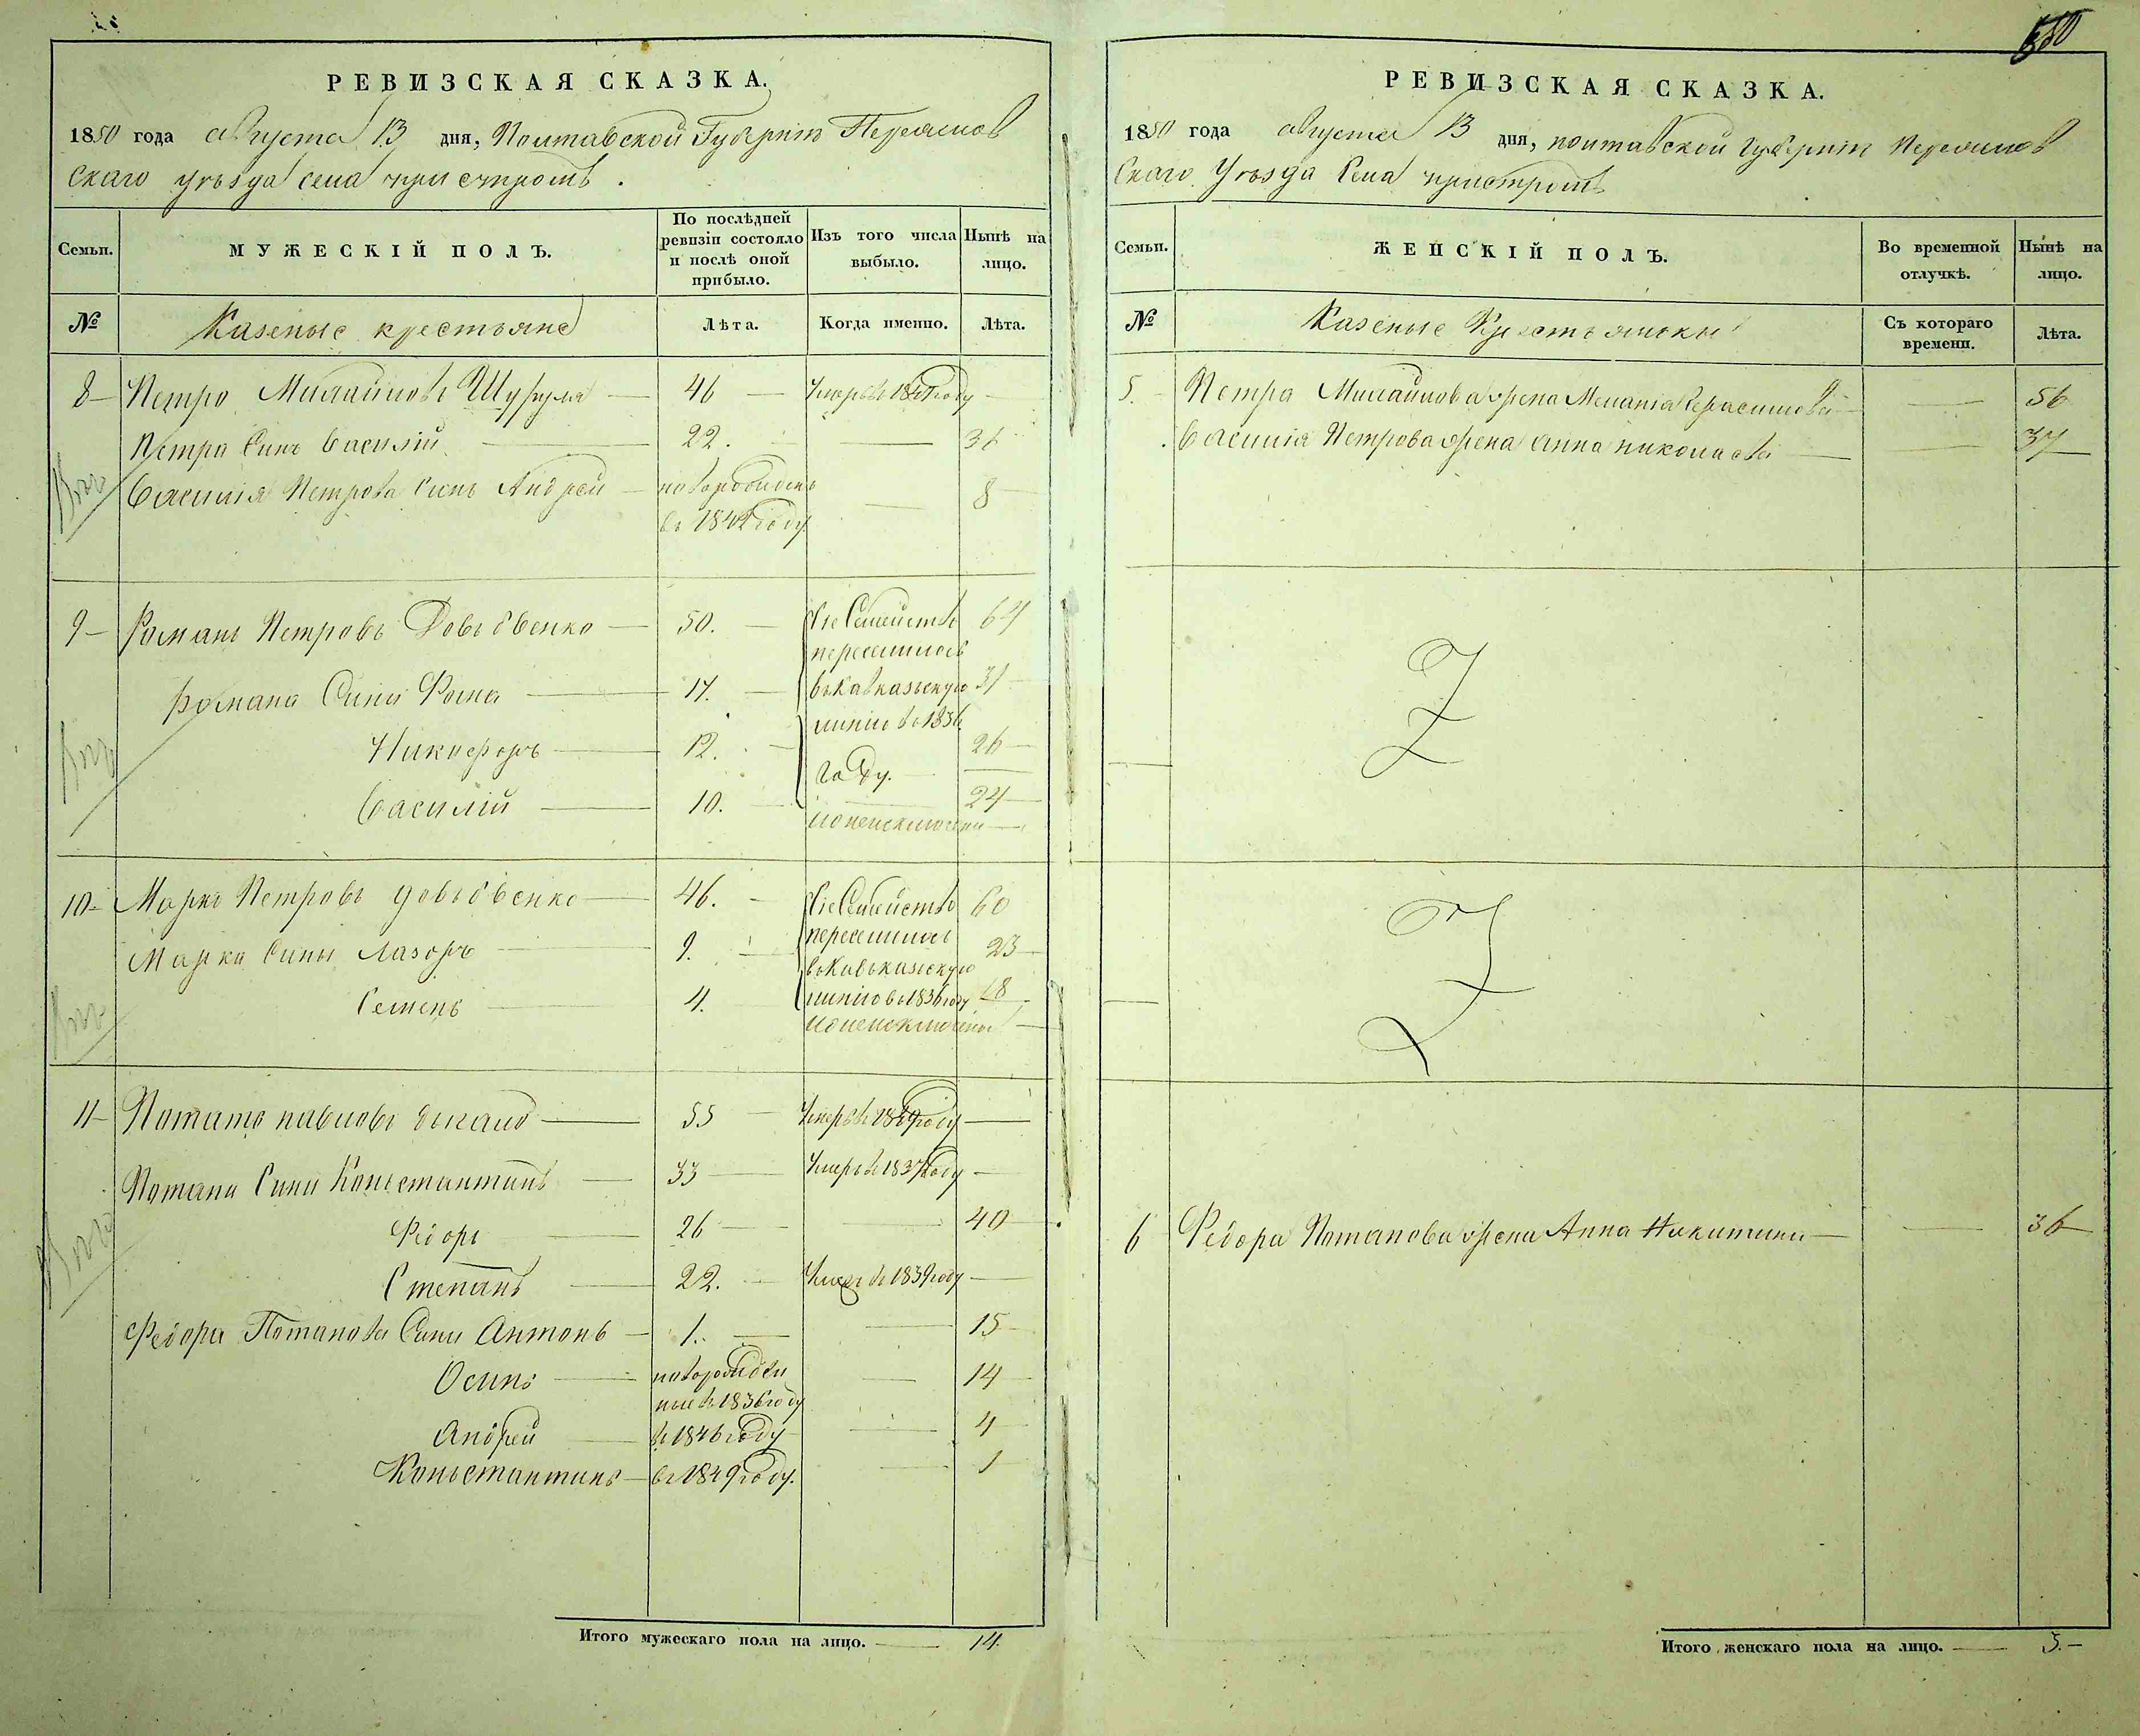 РЕВИЗСКАЯ СКАЗКА.
1850 года августа 13 дня, Полтавской Губерніи Переяслов
скаго уѣзда села пристромъ.
Семьи.
МУЖЕСКІЙ ПОЛЪ.
По послѣдней
ревизіи состояло
и послѣ оной
прибыло.
Изъ того числа
выбыло.
Нынѣ на
лицо.
№
Казеные крестьяне
Лѣта.
Когда именно.
Лѣта.
8 Петро Михайловъ 46 Умеръ в 1840 году
Петра Синъ Василій 22. 36
Василія Петрова Синъ Андрей новорожденъ 8
въ 1842 году
9 Романъ Петровъ Довъбенко 50. Сіе Семейство 64
переселилось
Романа Сини Фома 17. въ Кавказскую 31
линію в 1836
Никифоръ 12. 26
году.
Василій 10. 24
10 Марко Петровъ довъбенко 46. Сіе Семейство 60
переселилось
Марка Сини Лазоръ 9. 23
въ Кавъказскую
Семенъ 4. линію в 1836 году 18
11 Потапъ павловъ 55 Умеръ в 1849 году
Потапа Сини Коньстантинъ 33 Умеръ в 1837 году
Федоръ 26 40
Степанъ 22. Умеръ в 1839 году
Федора Потапова Сини Антонъ 1. 15
Осипъ новорожден 14
ные в 1836 году
Андрей в 1846 году 4
Коньстантинъ в 1849 году. 1
Итого мужескаго пола на лицо. 14.
РЕВИЗСКАЯ СКАЗКА.
1850 года августа 13 дня, полтавской губерніи Переяслов
скаго Уѣзда Села пристромъ
Семьи.
ЖЕНСКІЙ ПОЛЪ.
Во временной
отлучкѣ.
Нынѣ на
лицо.
№
Казеные Крестьянъки
Съ котораго
времени.
Лѣта.
5. Петра Михайлова жена Меланія Герасимова 56
Василія Петрова жена Анна николаева 37
6 Федора Потапова жена Анна Никитина 36
Итого женскаго пола на лицо. 3.